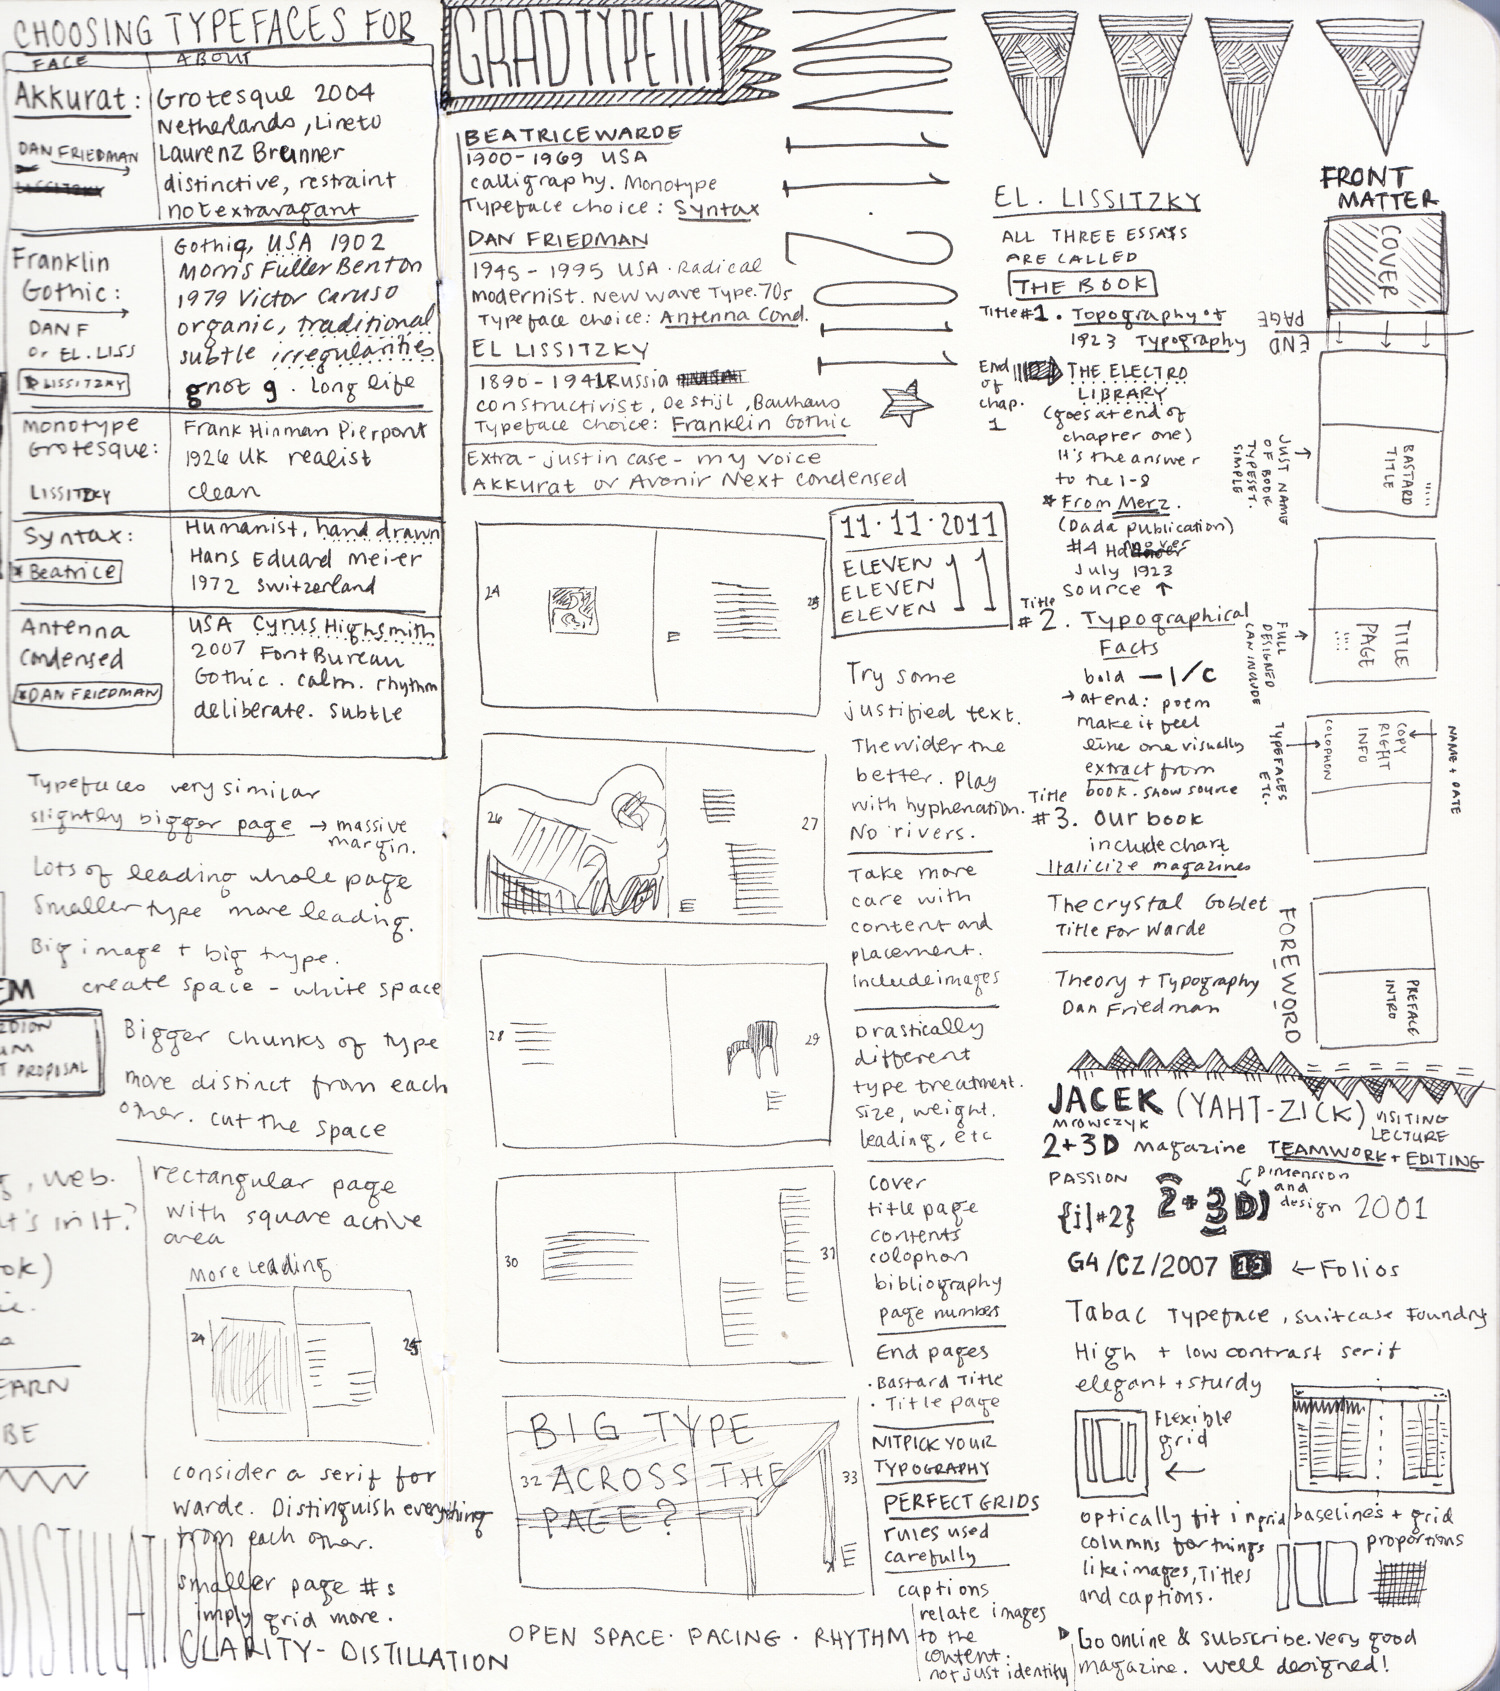 CHOOSING TYPEFACES FOR
FACE ABOUT
Akkurat: Grotesque 2004
Netherlands, Lineto
DAN FRIEDMAN Laurenz Brunner
distinctive, restraint
not extravagant
Franklin Gothic: Gothic, USA 1902
Morris Fuller Benton
1979 Victor Caruso
DAN F organic, traditional
or EL. LISS subtle irregularities
LISSITZKY g not g. Long life
Monotype Grotesque: Frank Hinman Pierpont
1926 UK realist
LISSITZKY clean
Syntax: Humanist, hand drawn
*Beatrice Hans Eduard Meier
1972 Switzerland
Antenna Condensed USA Cyrus Highsmith
2007 Font Bureau
*DAN FRIEDMAN Gothic. calm. rhythm
deliberate. subtle
Typefaces very similar
slightly bigger page → massive
margin.
Lots of leading whole page
Smaller type more leading.
Big image + big type.
create space - white space
EM
UM
T PROPOSAL
Bigger chunks of type
more distinct from each
other. cut the space
, web.
t's in it?
ok)
EARN
BE
rectangular page
with square active
area
More leading
24 25
consider a serif for
Warde. Distinguish everything
from each other.
smaller page #s
imply grid more.
DISTILLATI
CLARITY - DISTILLATION
GRADTYPE III
MON
11.20.11
BEATRICE WARDE
1900-1969 USA
calligraphy. Monotype
Typeface choice: Syntax
DAN FRIEDMAN
1945-1995 USA. Radical
modernist. New wave Type. 70s
Typeface choice: Antenna Cond.
EL LISSITZKY
1890-1941 Russia
constructivist, De Stijl, Bauhaus
Typeface choice: Franklin Gothic
Extra - just in case - my voice
AKKURAT or Avenir Next condensed
24 E 25
26 E 27
28 29 E
30 31
BIG TYPE
32 ACROSS THE 33
PAGE?
E
OPEN SPACE. PACING. RHYTHM
11.11.2011
ELEVEN
ELEVEN
ELEVEN
11
Try some
justified text.
The wider the
better. Play
with hyphenation.
No rivers.
Take more
care with
content and
placement.
Include images
Drastically
different
type treatment.
size, weight.
leading, etc
cover
title page
contents
colophon
bibliography
page numbers
End pages
. Bastard Title
. Title page
NITPICK YOUR
TYPOGRAPHY
PERFECT GRIDS
rules used
carefully
captions
relate images
to the
content.
not just identify
EL. LISSITZKY
ALL THREE ESSAYS
ARE CALLED
THE BOOK
Title #1. Topography of
1923 Typography
End
of
chap.
1
THE ELECTRO
LIBRARY
(goes at end of
chapter one)
It's the answer
to the 1-8
* From Merz.
(Dada publication)
#4 Hannover
July 1923
source ↑
Title
#2. Typographical
Facts
bold — l/c
→ at end: poem
make it feel
like one visually
extract from
book. show source
Title
#3. our book
include chart
Italicize magazines
The Crystal Goblet
Title For Warde
Theory + Typography
Dan Friedman
FRONT
MATTER
COVER
END
PAGE
BASTARD
TITLE
JUST NAME
OF BOOK
TYPESET.
SIMPLE
TITLE
PAGE
FULL
DESIGNED
CAN INCLUDE
COPY
RIGHT
INFO
COLOPHON
TYPEFACES
ETC.
NAME + DATE
FOREWORD
PREFACE
INTRO
JACEK (YAHT-ZICK) VISITING
MROWCZYK LECTURE
2+3D magazine TEAMWORK + EDITING
PASSION
{j|#2} 2+3D) Dimension
and
design 2001
G4/CZ/2007 ← Folios
Tabac Typeface, Suitcase Foundry
High + low contrast serif
elegant + sturdy
Flexible
grid
optically fit in grid
columns for things
like images, Titles
and captions.
baselines + grid
proportions
Go online & subscribe. very good
magazine. well designed!